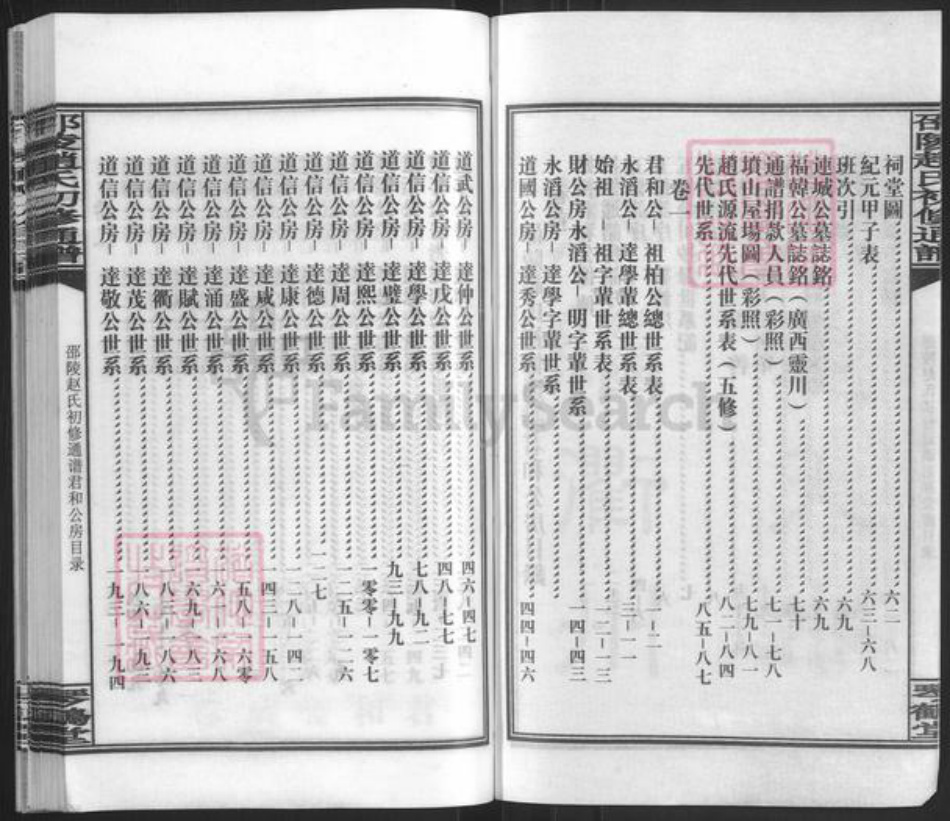 邵陵趙氏初修通譜
祠堂圖 六二
紀元甲子表 六三-六八
班次引 六九
連城公墓誌銘 六九
福韓公墓誌銘(廣西靈川) 七十
通譜捐款人員(彩照) 七一-七八
墳山屋場圖(彩照) 七九-八一
趙氏源流先代世系表(五修) 八二-八四
先代世系 八五-八七
卷一
君和公 祖柏公總世系表 一-二
永滔公 達學輩總世系表 三-一一
始祖 祖字輩世系表 一二-一三
財公房永滔公-明字輩世系 一四-四三
永滔公房-達學字輩世系
道國公房-達秀公世系 四四-四六
琴鶴堂
道武公房-達仲公世系 四六-四七
道信公房-達戊公世系 四八-七七
道信公房-達學公世系 七八-九二
道信公房-達璧公世系 九三-九九
道信公房-達熙公世系 一零零-一零七
道信公房-達周公世系 一二五-一二六
道信公房-達德公世系 一二七
道信公房-達康公世系 一二八-一四二
道信公房-達咸公世系 一四三-一五八
道信公房-達盛公世系 一五八-一六零
道信公房-達涌公世系 一六一-一六八
道信公房-達賦公世系 一六九-一八二
道信公房-達衢公世系 一八三-一八六
道信公房-達茂公世系 一八六-一九二
道信公房-達敬公世系 一九三-一九四
邵陵趙氏初修通譜
邵陵赵氏初修通谱君和公房目录
琴鶴堂
FamilySearch